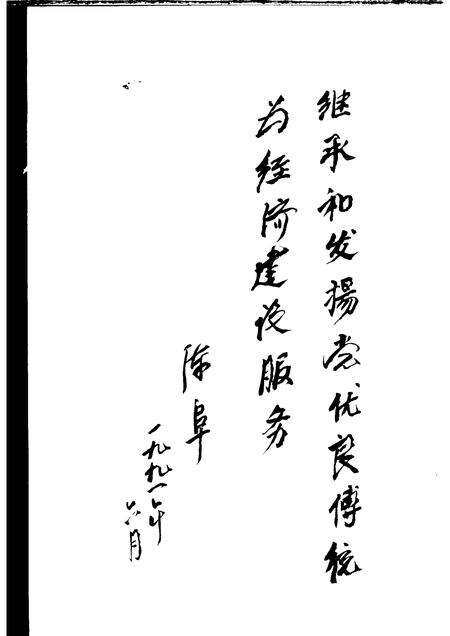 继承和发揚党优良傳統
为经济建设服务
陈阜
一九九一年
六月